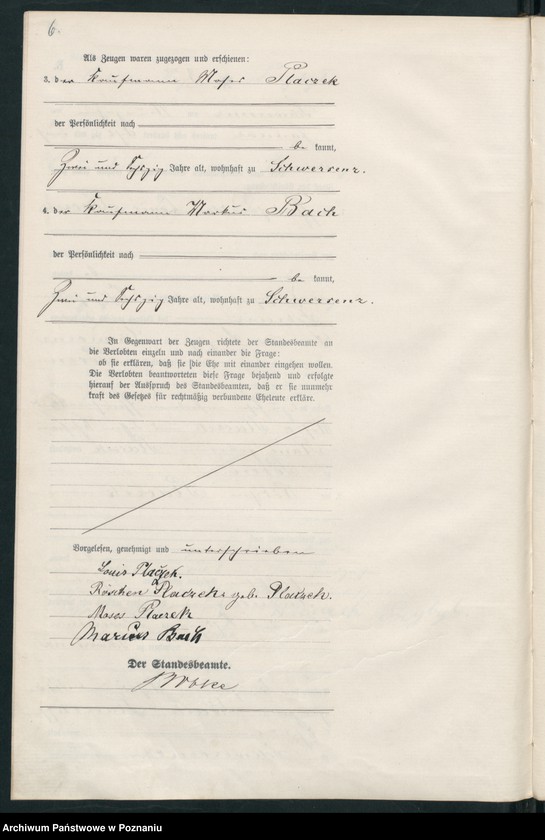 6.
Als Zeugen waren zugezogen und erschienen:
3. der Kaufmann Moses Placzek
der Persönlichkeit nach
be kannt,
Zwei und Sechszig Jahre alt, wohnhaft zu Schwersenz.
4. der Kaufmann Markus Bach
der Persönlichkeit nach
be kannt,
Zwei und Sechszig Jahre alt, wohnhaft zu Schwersenz.
In Gegenwart der Zeugen richtete der Standesbeamte an
die Verlobten einzeln und nach einander die Frage:
ob sie erklären, daß sie die Ehe mit einander eingehen wollen.
Die Verlobten beantworteten diese Frage bejahend und erfolgte
hierauf der Ausspruch des Standesbeamten, daß er sie nunmehr
kraft des Gesetzes für rechtmäßig verbundene Eheleute erkläre.
Vorgelesen, genehmigt und unterschrieben
Louis Placzek.
Röschen Placzek geb. Placzek.
Moses Placzek
Marcus Bach
Der Standesbeamte.
Archiwum Państwowe w Poznaniu